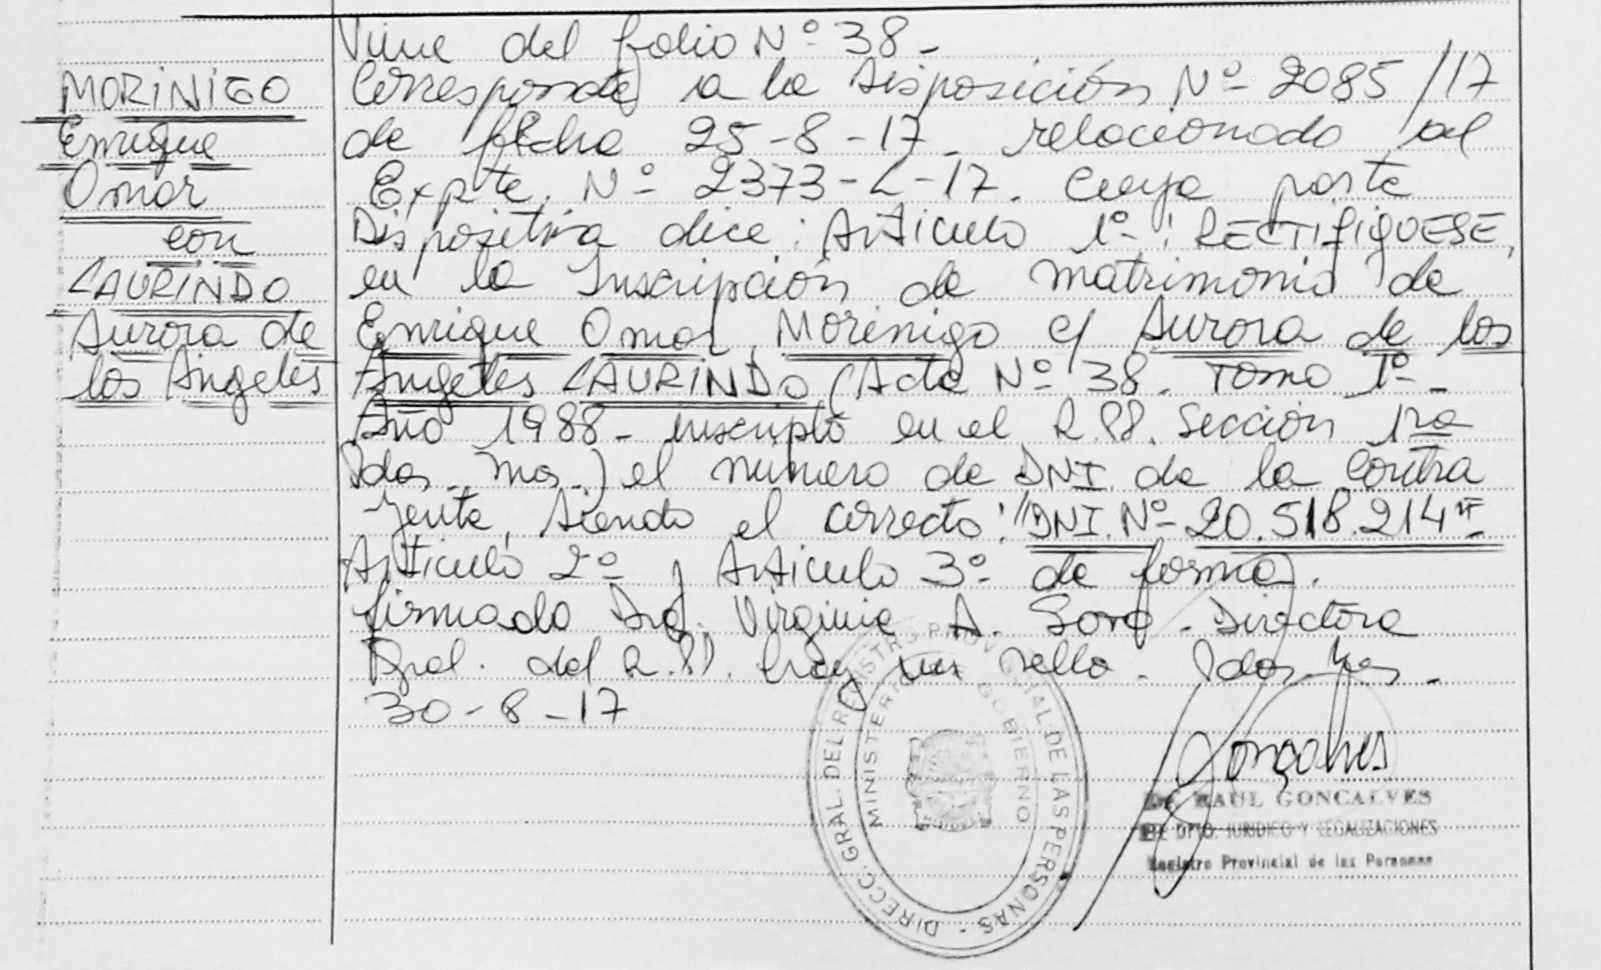 MORINIGO
Enrique
Omar
con
LAURINDO
Aurora de
los Angeles
Viene del folio Nº 38 -
Corresponde a la Disposición Nº 2085/17
de fecha 25-8-17 - relacionado al
Expte. Nº 2373-L-17. Cuya parte
Dispositiva dice: Articulo 1º: RECTIFIQUESE,
en la Inscripción de matrimonio de
Enrique Omar Morinigo c/ Aurora de los
Angeles LAURINDO (Acta Nº 38 - Tomo 1º -
Año 1988 - inscripto en el R.PP. Sección 1ra
Pdas. Mnes.) el número de DNI. de la Contra
yente, siendo el correcto: "DNI. Nº 20.518.214"
Articulo 2º y Articulo 3º de forma.
firmado Virginia A. Directora
Gral. del R.PP. hay un sello - Pdas. Mnes. -
30-8-17
DIRECC. GRAL. DEL REGISTRO PROVINCIAL DE LAS PERSONAS -
MINISTERIO GOBIERNO
Gonçalves
Dr. RAUL GONCALVES
DPTO. JURIDICO Y LEGALIZACIONES
Registro Provincial de las Personas